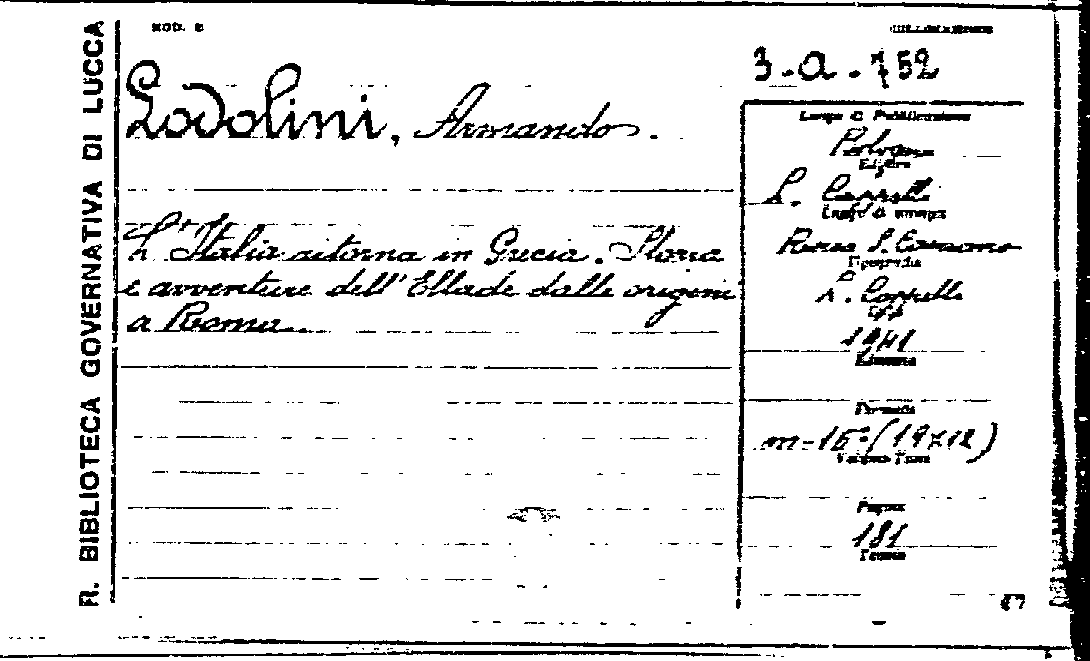 R. BIBLIOTECA GOVERNATIVA DI LUCCA
MOD. 2
3-a-752
Lodolini, Armando.
L'Italia ritorna in Grecia. Storia
e avventure dell'Ellade dalle origini
a Roma.
Luogo di Pubblicazione
Bologna
Editore
L. Cappelli
Luogo di stampa
Rocca S. Casciano
Tipografia
L. Cappelli
1941
Edizione
Formato
in-16° (19x12)
Volume Tomo
Pagine
181